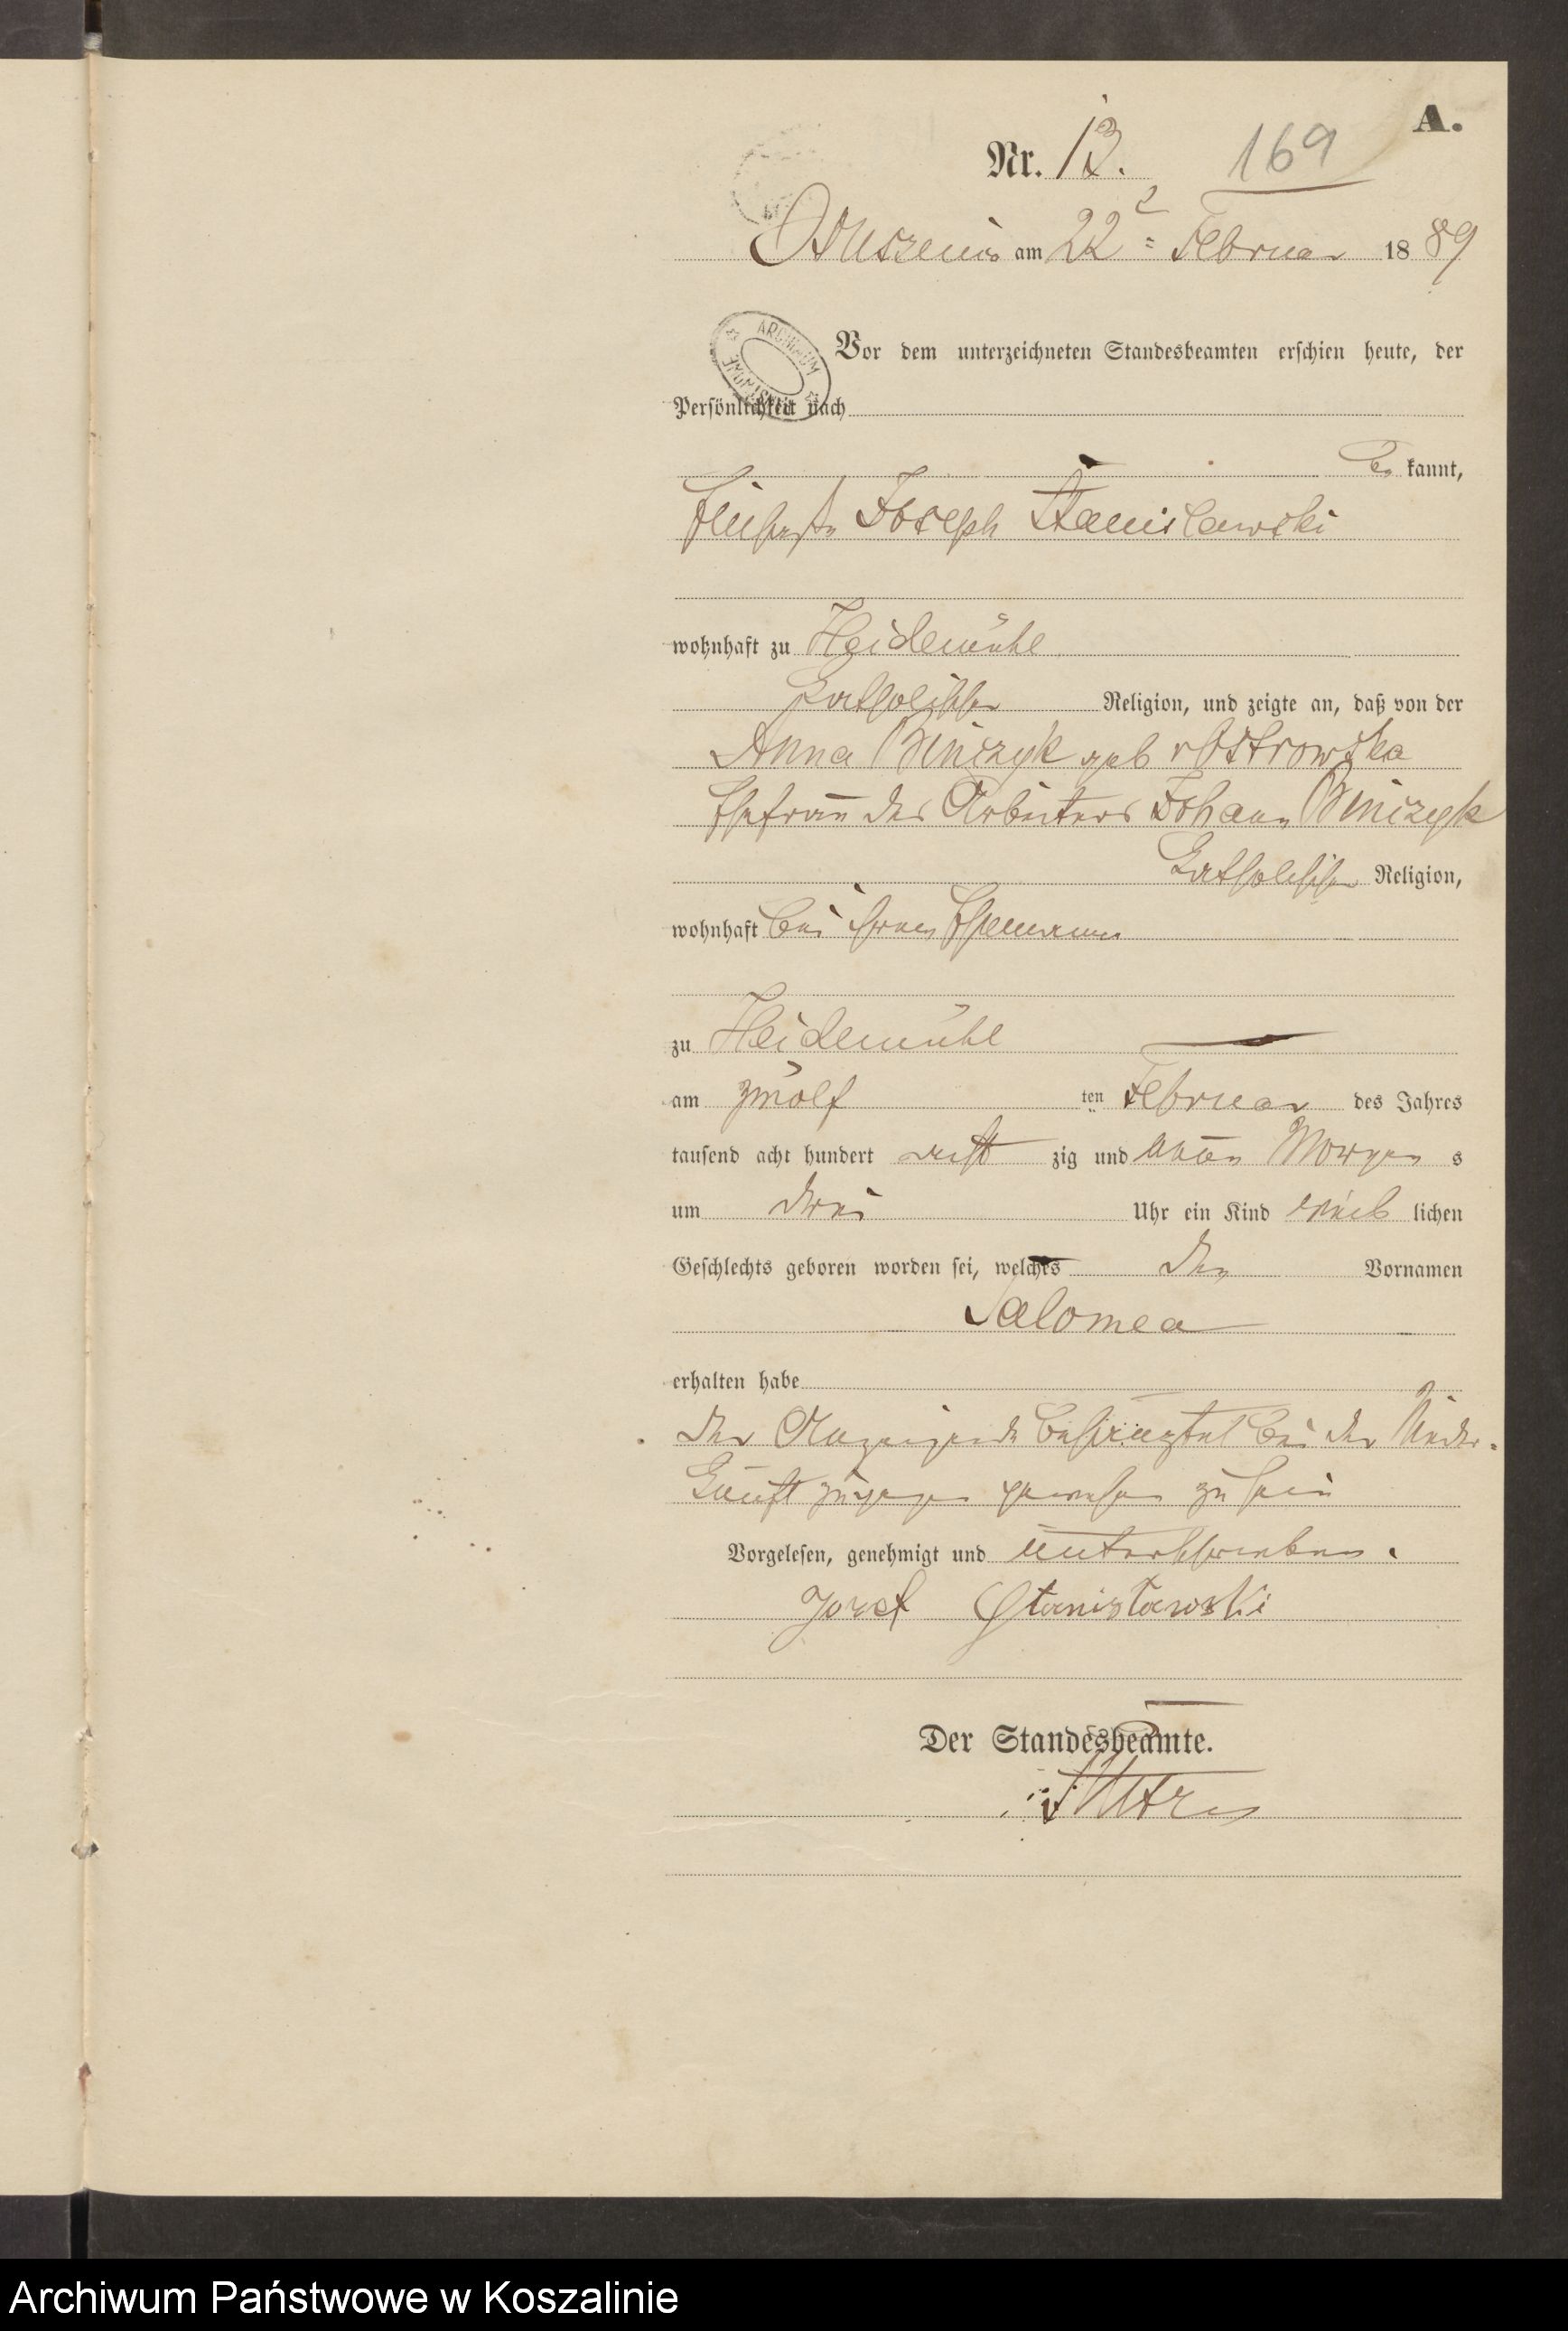 A.
Nr. 13. 169
Ossuszenica am 22ᵗ = Februar 1889
ARCHIWUM
Vor dem unterzeichneten Standesbeamten erschien heute, der
Persönlichkeit nach
be kannt,
Joseph Stanislawski
wohnhaft zu Heidemühl
katholischer Religion, und zeigte an, daß von der
Anna Binczyk geb v Ostrowska
Ehefrau des Arbeiters Johann Binczyk
katholischer Religion,
wohnhaft bei ihrem Ehemann
zu Heidemühl
am zwölf ten Februar des Jahres
tausend acht hundert acht zig und neun Morgen s
um drei Uhr ein Kind weib lichen
Geschlechts geboren worden sei, welches den Vornamen
Salomea
erhalten habe
Der Anzeigende bei der Nieder-
kunft zugegen gewesen zu sein
Vorgelesen, genehmigt und unterschrieben.
Jozef Stanisławski
Der Standesbeamte.
Archiwum Państwowe w Koszalinie